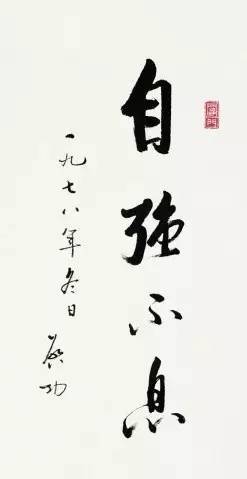 自强不息
一九七八年冬日
启功